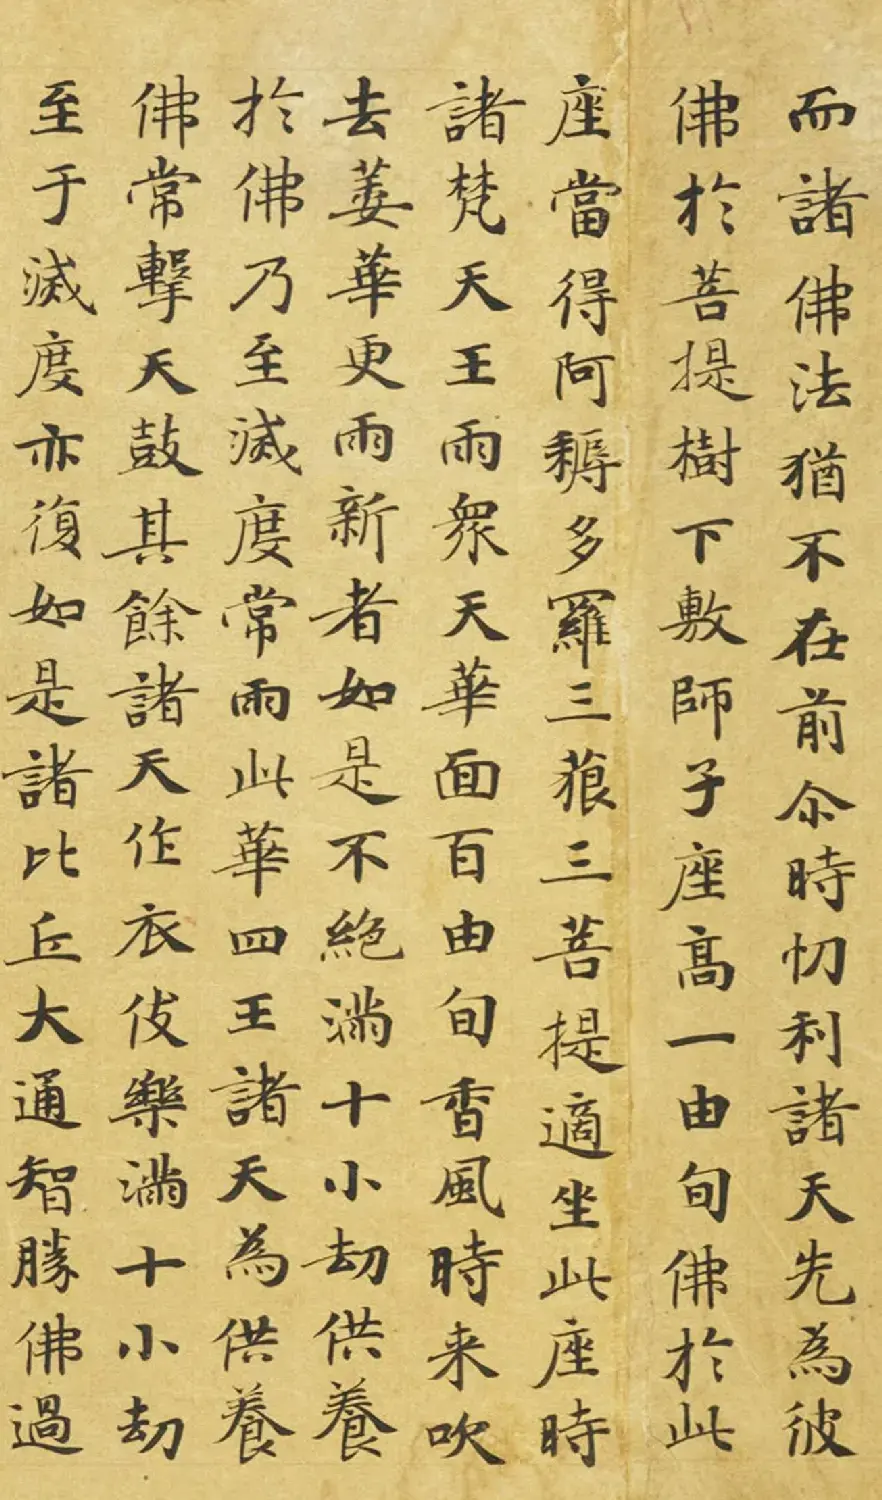 而諸佛法猶不在前尒時忉利諸天先為彼
佛於菩提樹下敷師子座高一由旬佛於此
座當得阿耨多羅三藐三菩提適坐此座時
諸梵天王雨眾天華面百由旬香風時来吹
去萎華更雨新者如是不絶滿十小劫供養
於佛乃至滅度常雨此華四王諸天為供養
佛常擊天鼓其餘諸天作衣伎樂滿十小劫
至于滅度亦復如是諸比丘大通智勝佛過